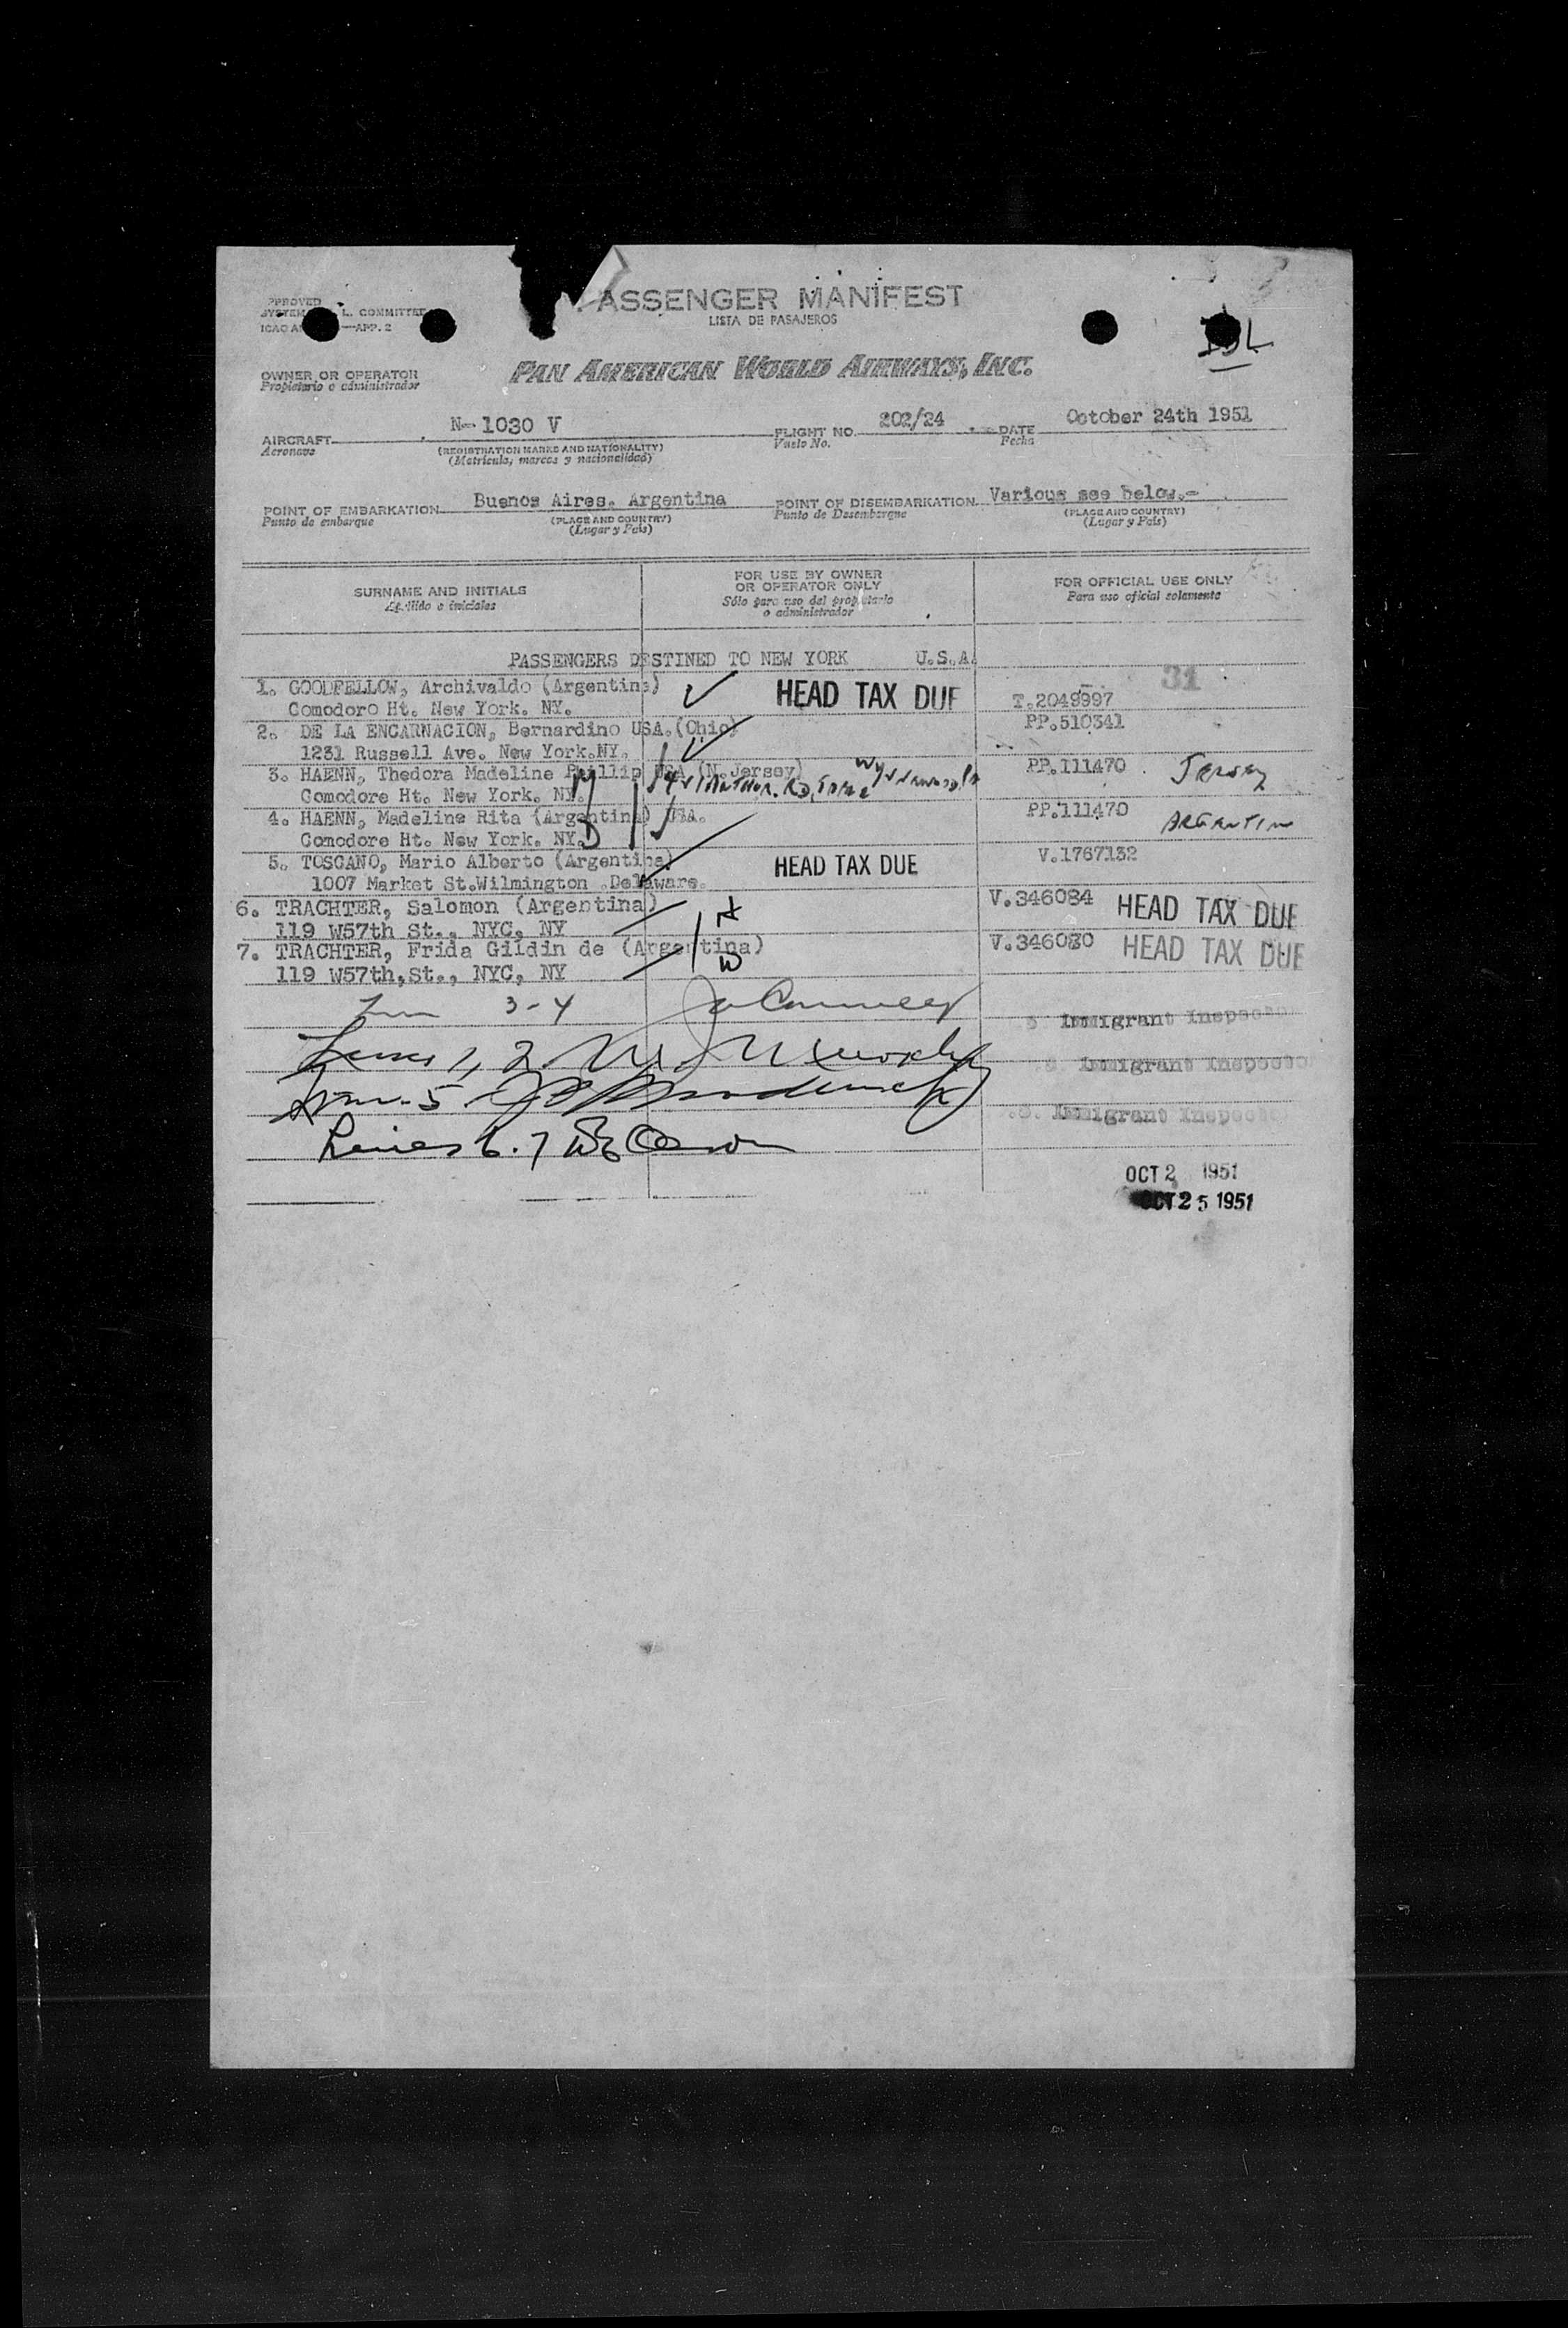 PPROVED
SYSTEM L. COMMITTEE
ICAO A —APP. 2
ASSENGER MANIFEST
LISTA DE PASAJEROS
OWNER OR OPERATOR
Propietario o administrador
PAN AMERICAN WORLD AIRWAYS, INC.
AIRCRAFT N-1030 V FLIGHT NO. 202/24 DATE October 24th 1951
Aeronave (REGISTRATION MARKS AND NATIONALITY) Vuelo No. Fecha
(Matrícula, marcas y nacionalidad)
POINT OF EMBARKATION Buenos Aires. Argentina POINT OF DISEMBARKATION Various see below.-
Punto de embarque (PLACE AND COUNTRY) Punto de Desembarque (PLACE AND COUNTRY)
(Lugar y País) (Lugar y País)
SURNAME AND INITIALS FOR USE BY OWNER OR OPERATOR ONLY FOR OFFICIAL USE ONLY
Apellido e iniciales Sólo para uso del propietario o administrador Para uso oficial solamente
PASSENGERS DESTINED TO NEW YORK U.S.A.
31
1. GOODFELLOW, Archivaldo (Argentina) HEAD TAX DUE T.2049997
Comodoro Ht. New York. NY.
2. DE LA ENCARNACION, Bernardino USA.(Ohio) PP.510341
1231 Russell Ave. New York.NY.
3. HAENN, Thedora Madeline Phillip USA (N.Jersey) PP.111470 JERSEY
Comodore Ht. New York. NY.
4. HAENN, Madeline Rita (Argentina) USA. PP.111470 ARGENTIN
Comodore Ht. New York. NY.
5. TOSCANO, Mario Alberto (Argentina) HEAD TAX DUE V.1767132
1007 Market St.Wilmington .Delaware.
6. TRACHTER, Salomon (Argentina) H V.346084 HEAD TAX DUE
119 W57th St., NYC, NY
7. TRACHTER, Frida Gildin de (Argentina) W V.346080 HEAD TAX DUE
119 W57th,St., NYC, NY
3-4
S Immigrant Inspecto
Lines 1, 2
S. Immigrant Inspecto
5
.S. Immigrant Inspecto
Lines 6.7
OCT 2 1951
OCT 25 1951